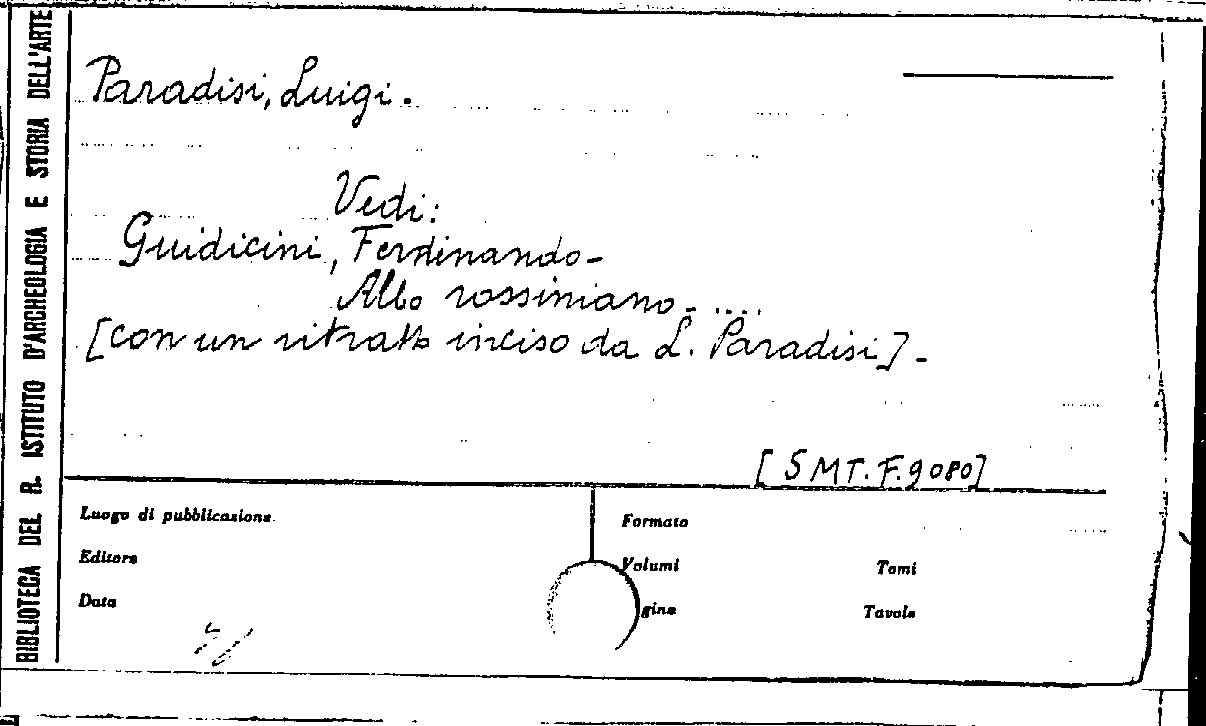 BIBLIOTECA DEL R. ISTITUTO D'ARCHEOLOGIA E STORIA DELL'ARTE
Paradisi, Luigi.
Vedi:
Guidicini, Ferdinando-
Albo rossiniano-....
[con un ritratto inciso da L. Paradisi]-
[SMT. F.9080]
Luogo di pubblicazione
Editore
Data
Formato
Volumi
Tomi
gine
Tavole